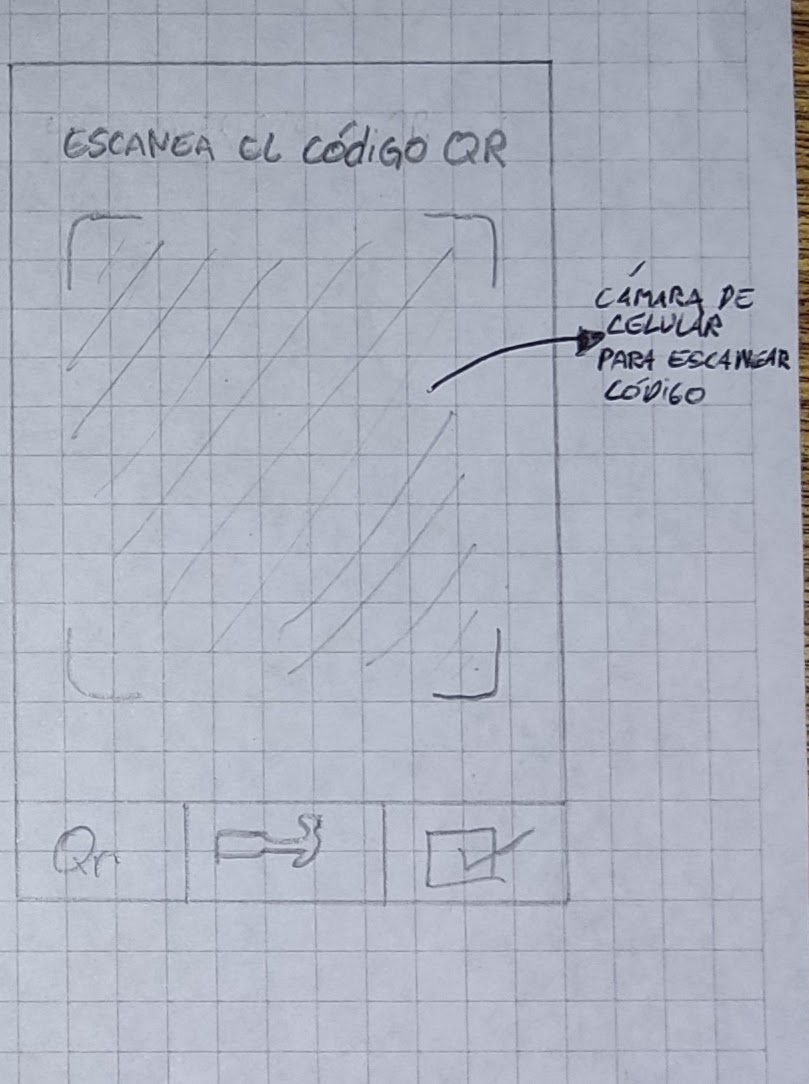 ESCANEA EL CÓDIGO QR
CÁMARA DE
CELULAR
PARA ESCANEAR
CÓDIGO
Qr